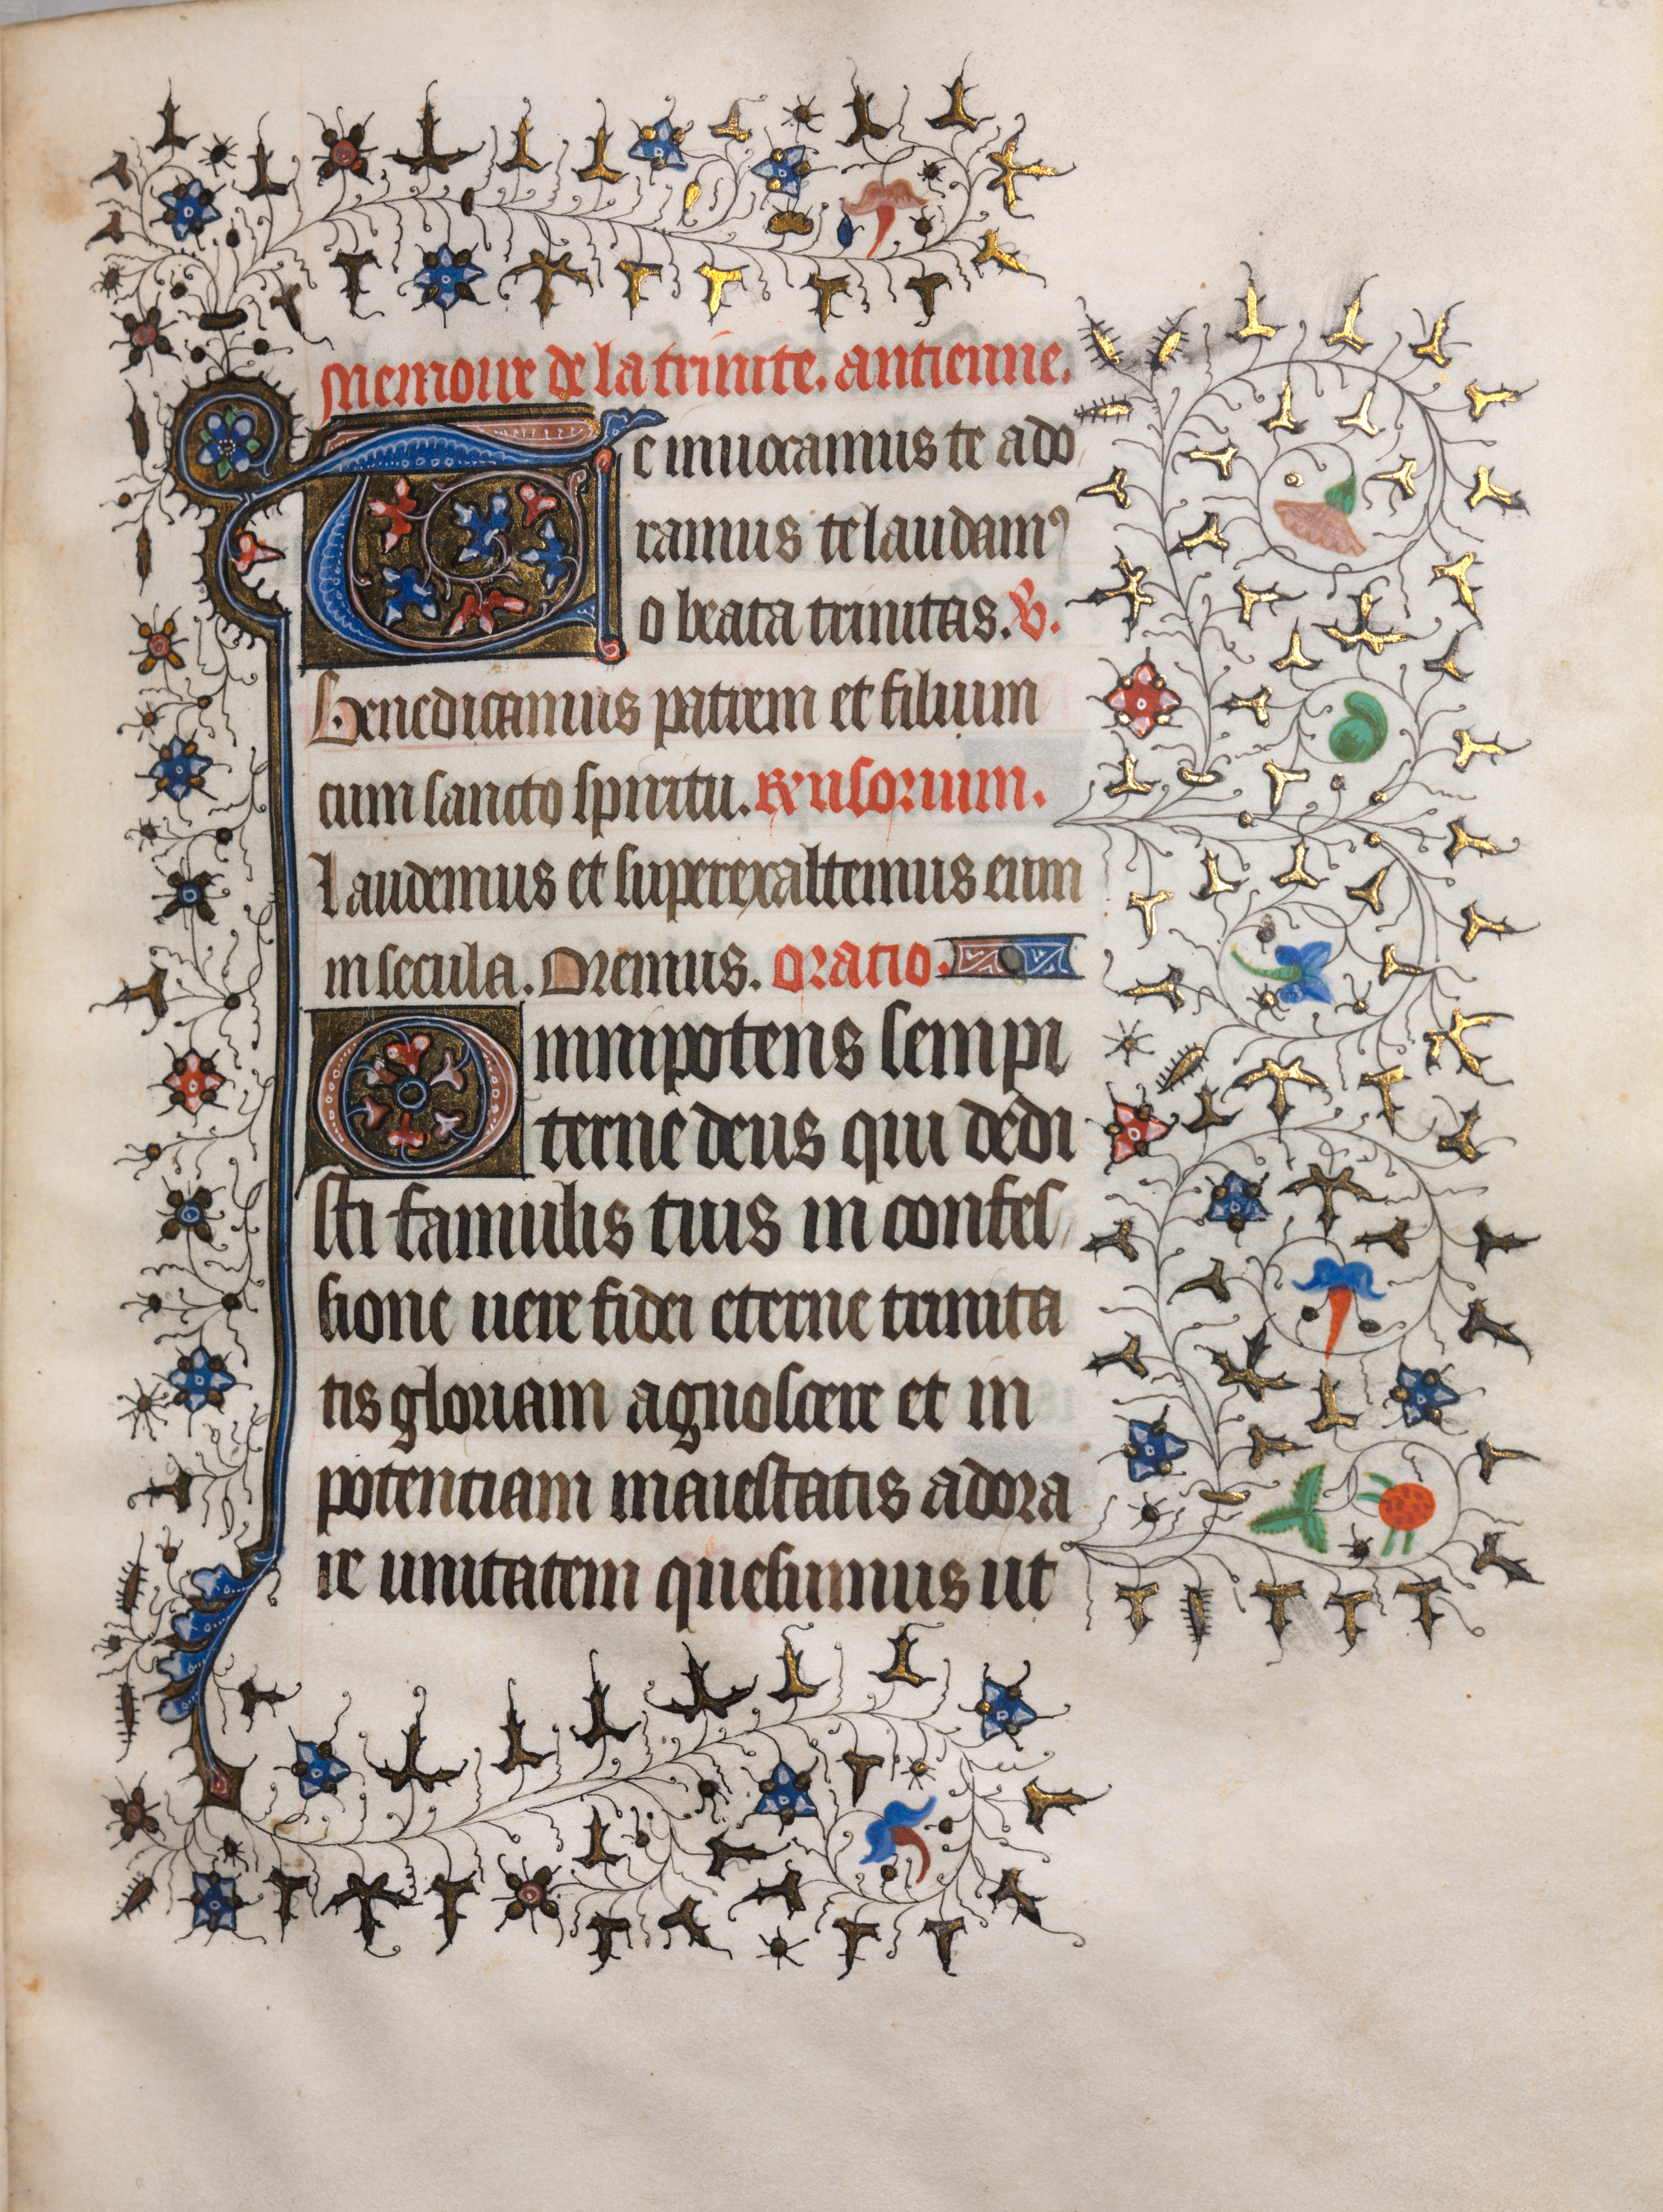 Memoire de la trinite. antienne.
Te inuocamus te ado
ramus te laudam⁹
o beata trinitas. V.
Benedicamus patrem et filium
cum sancto spiritu. Responsorium.
Laudemus et superexaltemus eum
in secula. Oremus. oratio.
Omnipotens sempi
terne deus qui dedi
sti famulis tuis in confes
sione uere fidei eterne trinita
tis gloriam agnoscere et in
potentiam maiestatis adora
re unitatem quesumus ut